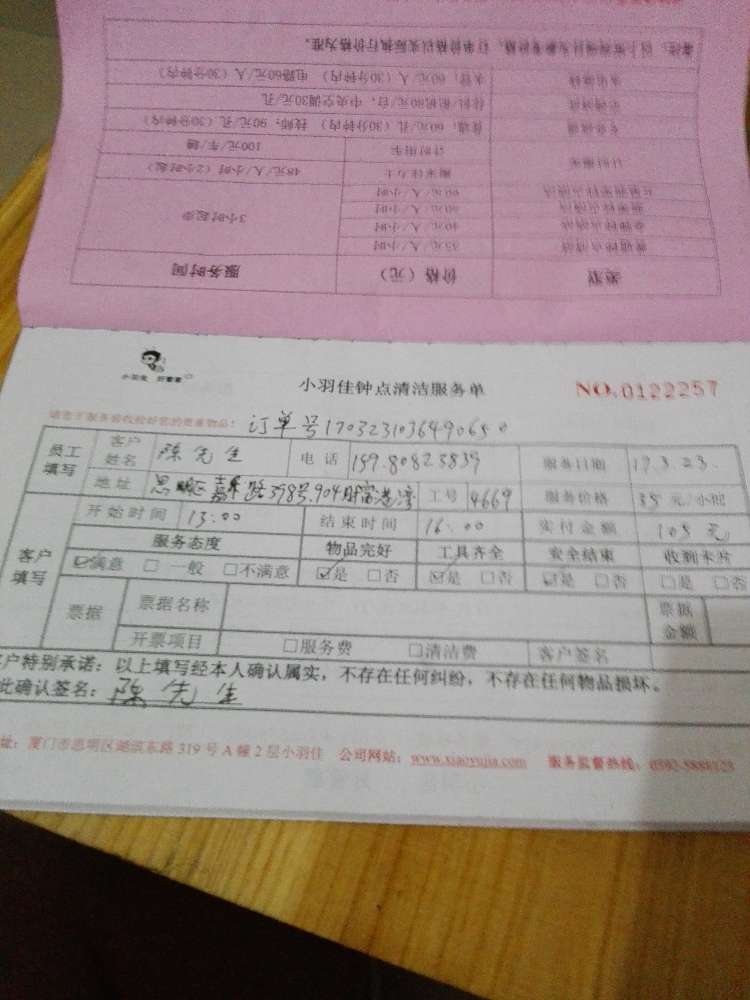 备注：以上资费项目为参考价格，订单价格以实际执行价格为准。
水电维修 水管：60元/人（30分钟内） 电路60元/人（30分钟内）
空调清洗 中央空调30元/孔
专业疏通 普通：60元/孔（30分钟内） 技师：90元/孔（30分钟内）
计时用车 100元/车/趟
计时搬家 搬家佳力士 48元/人/小时（2小时起）
60元/人/小时
40元/人/小时
35元/人/小时 3小时起步
类型 价格（元） 服务时间
小羽佳 好管家
小羽佳钟点清洁服务单 NO.0122257
请您于服务前收捡好您的贵重物品！ 订单号1703231036490650
员工填写 客户姓名 陈先生 电话 159.80823839 服务日期 17.3.23.
地址 路398号.904财富港湾 工号 4669 服务价格 35 元/小时
客户填写 开始时间 13:00 结束时间 16:00 实付金额 105 元
服务态度 物品完好 工具齐全 安全结束 收到卡片
☑满意 □一般 □不满意 ☑是 □否 ☑是 □否 ☑是 □否 □是 □否
票据 票据名称 票据金额
开票项目 □服务费 □清洁费 客户签名
客户特别承诺：以上填写经本人确认属实，不存在任何纠纷，不存在任何物品损坏。
此确认签名：陈先生
址：厦门市思明区湖滨东路319号A幢2层小羽佳 公司网站：www.xiaoyujia.com 服务监督热线：0592-5888123